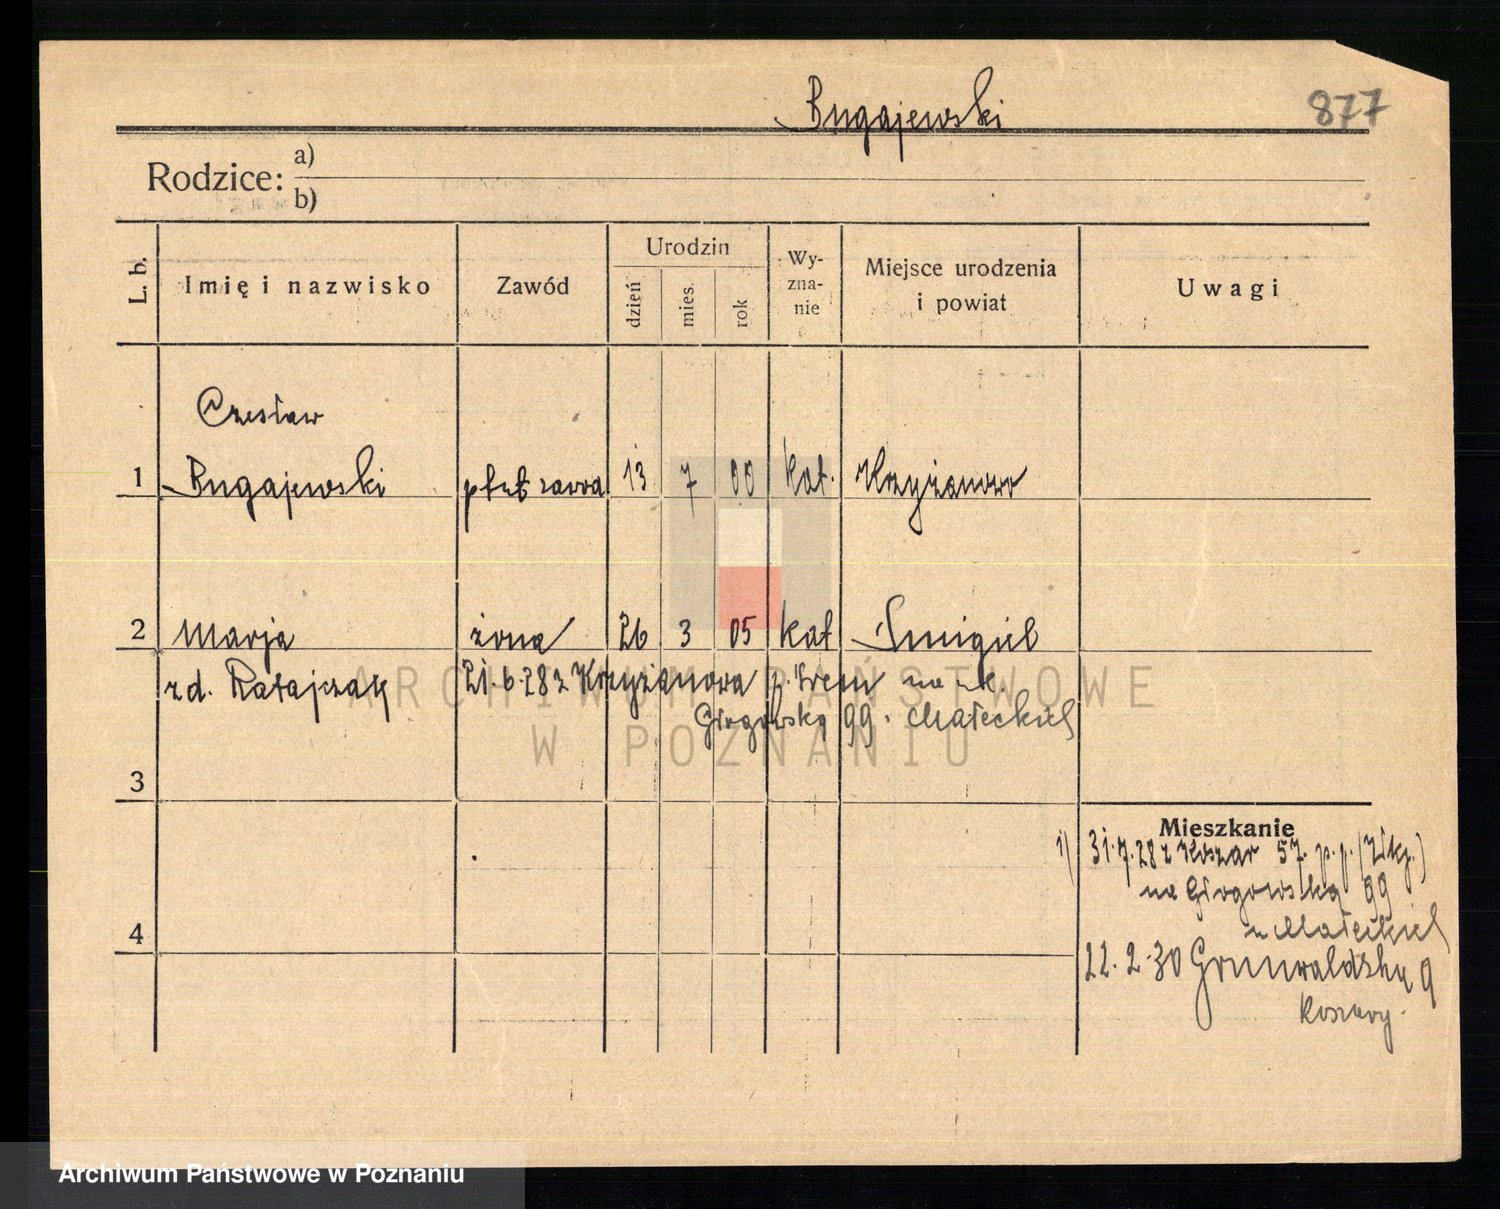 Bugajewski
877
Rodzice: a)
b)
L. b.
Imię i nazwisko
Zawód
Urodzin
dzień
mies.
rok
Wy-
zna-
nie
Miejsce urodzenia
i powiat
Uwagi
Czesław
1 Bugajewski plut zawod 13 7 00 kat. Krzyżanowo
2 Marja żona 26 3 05 kat Śmigiel
zd. Ratajczak 21.6.28 z Krzyżanowa p. Śrem na
Głogowską 99. Małeckich
3
Mieszkanie
1) 31.7.28 z Koszar 57. p.p.
na Głogowską 99
u Małeckich
4
22.2.30 Grunwaldzka 9
Koszary.
ARCHIWUM PAŃSTWOWE
W POZNANIU
Archiwum Państwowe w Poznaniu